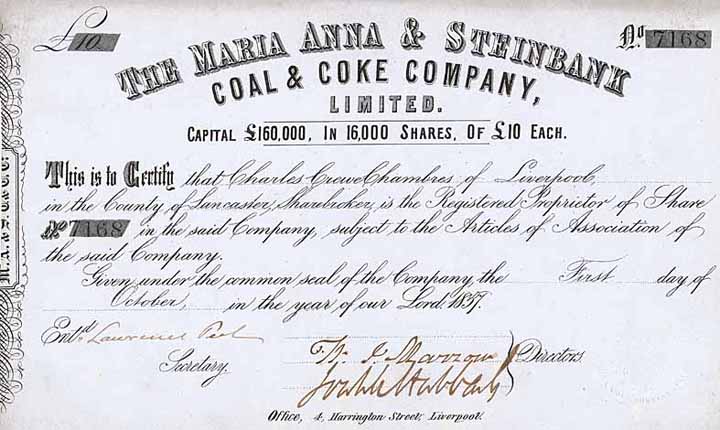 £10.
No 7168
THE MARIA ANNA & STEINBANK
COAL & COKE COMPANY,
LIMITED.
CAPITAL £160,000, IN 16,000 SHARES, OF £10 EACH.
This is to Certify that Charles Crewe Chambres of Liverpool,
in the County of Lancaster, Sharebroker, is the Registered Proprietor of Share
No 7168 in the said Company, subject to the Articles of Association of
the said Company.
Given under the common seal of the Company, the First day of
October, in the year of our Lord 1857.
Entd. Lawrence Peel
Secretary.
Directors
Office, 4, Harrington Street, Liverpool.
M.A. & S. C. & C. C.